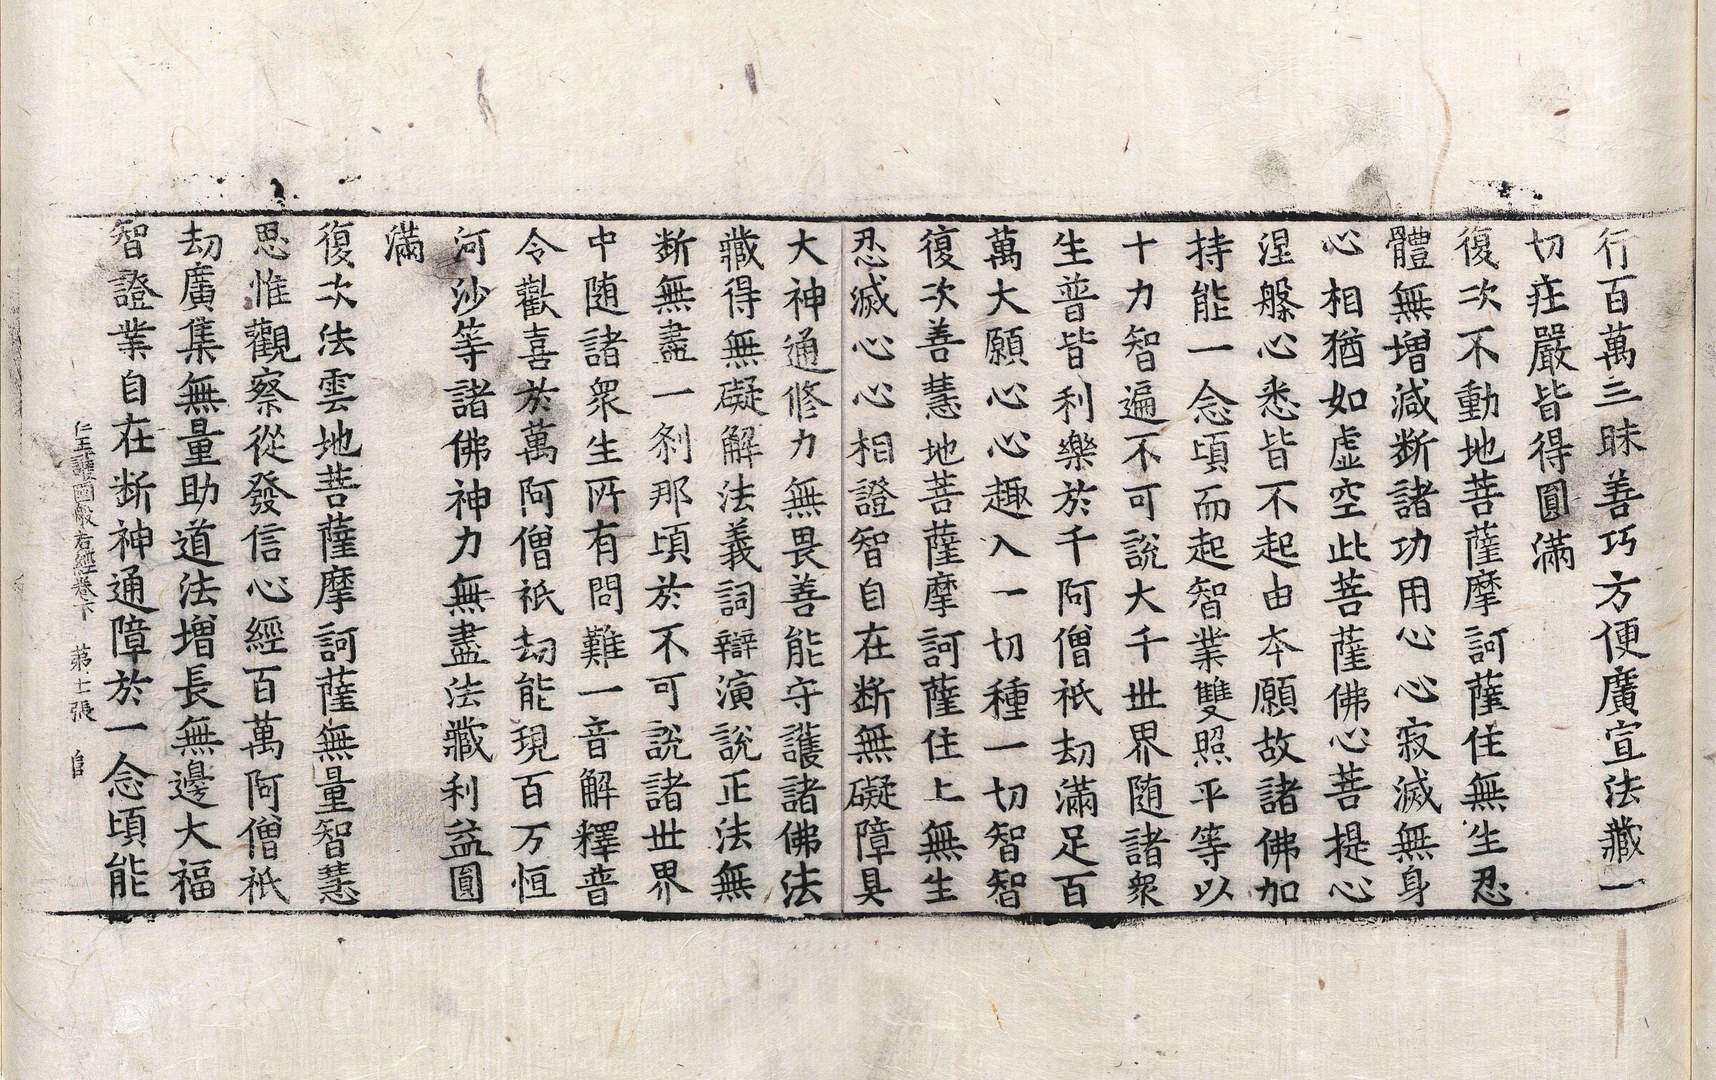 行百萬三昧善巧方便廣宣法藏一
切莊嚴皆得圓滿
復次不動地菩薩摩訶薩住無生忍
體無增減断諸功用心心寂滅無身
心相猶如虛空此菩薩佛心菩提心
涅槃心悉皆不起由本願故諸佛加
持能一念頃而起智業雙照平等以
十力智遍不可說大千世界随諸衆
生普皆利樂於千阿僧祇劫滿足百
萬大願心心趣入一切種一切智智
復次善慧地菩薩摩訶薩住上無生
忍滅心心相證智自在断無礙障具
大神通修力無畏善能守護諸佛法
藏得無礙解法義詞辯演說正法無
断無盡一刹那頃於不可說諸世界
中随諸衆生所有問難一音解釋普
令歡喜於萬阿僧祇劫能現百万恒
河沙等諸佛神力無盡法藏利益圓
滿
復次法雲地菩薩摩訶薩無量智慧
思惟觀察從發信心經百萬阿僧祇
劫廣集無量助道法增長無邊大福
智證業自在断神通障於一念頃能
仁王護國般若經卷下　第七張